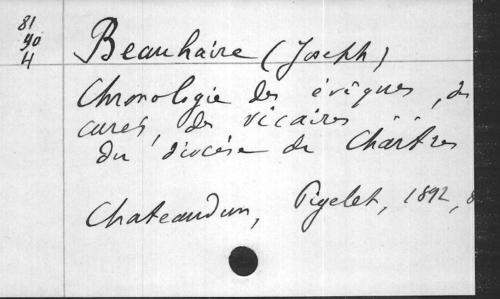 81
90
4
Beauhaire (Joseph)
Chronologie des évêques, des
curés, des vicaires
du diocèse de Chartres
Chateaudun, Pigelet, 1892, 8